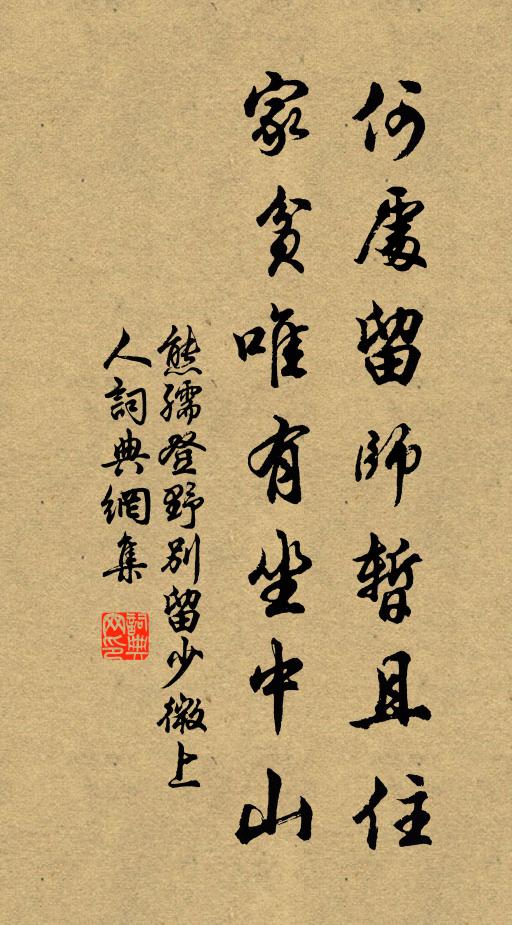 何處留師暫且住
家貧唯有坐中山
熊孺登野別留少微上
人詞典網集
詞典
网印